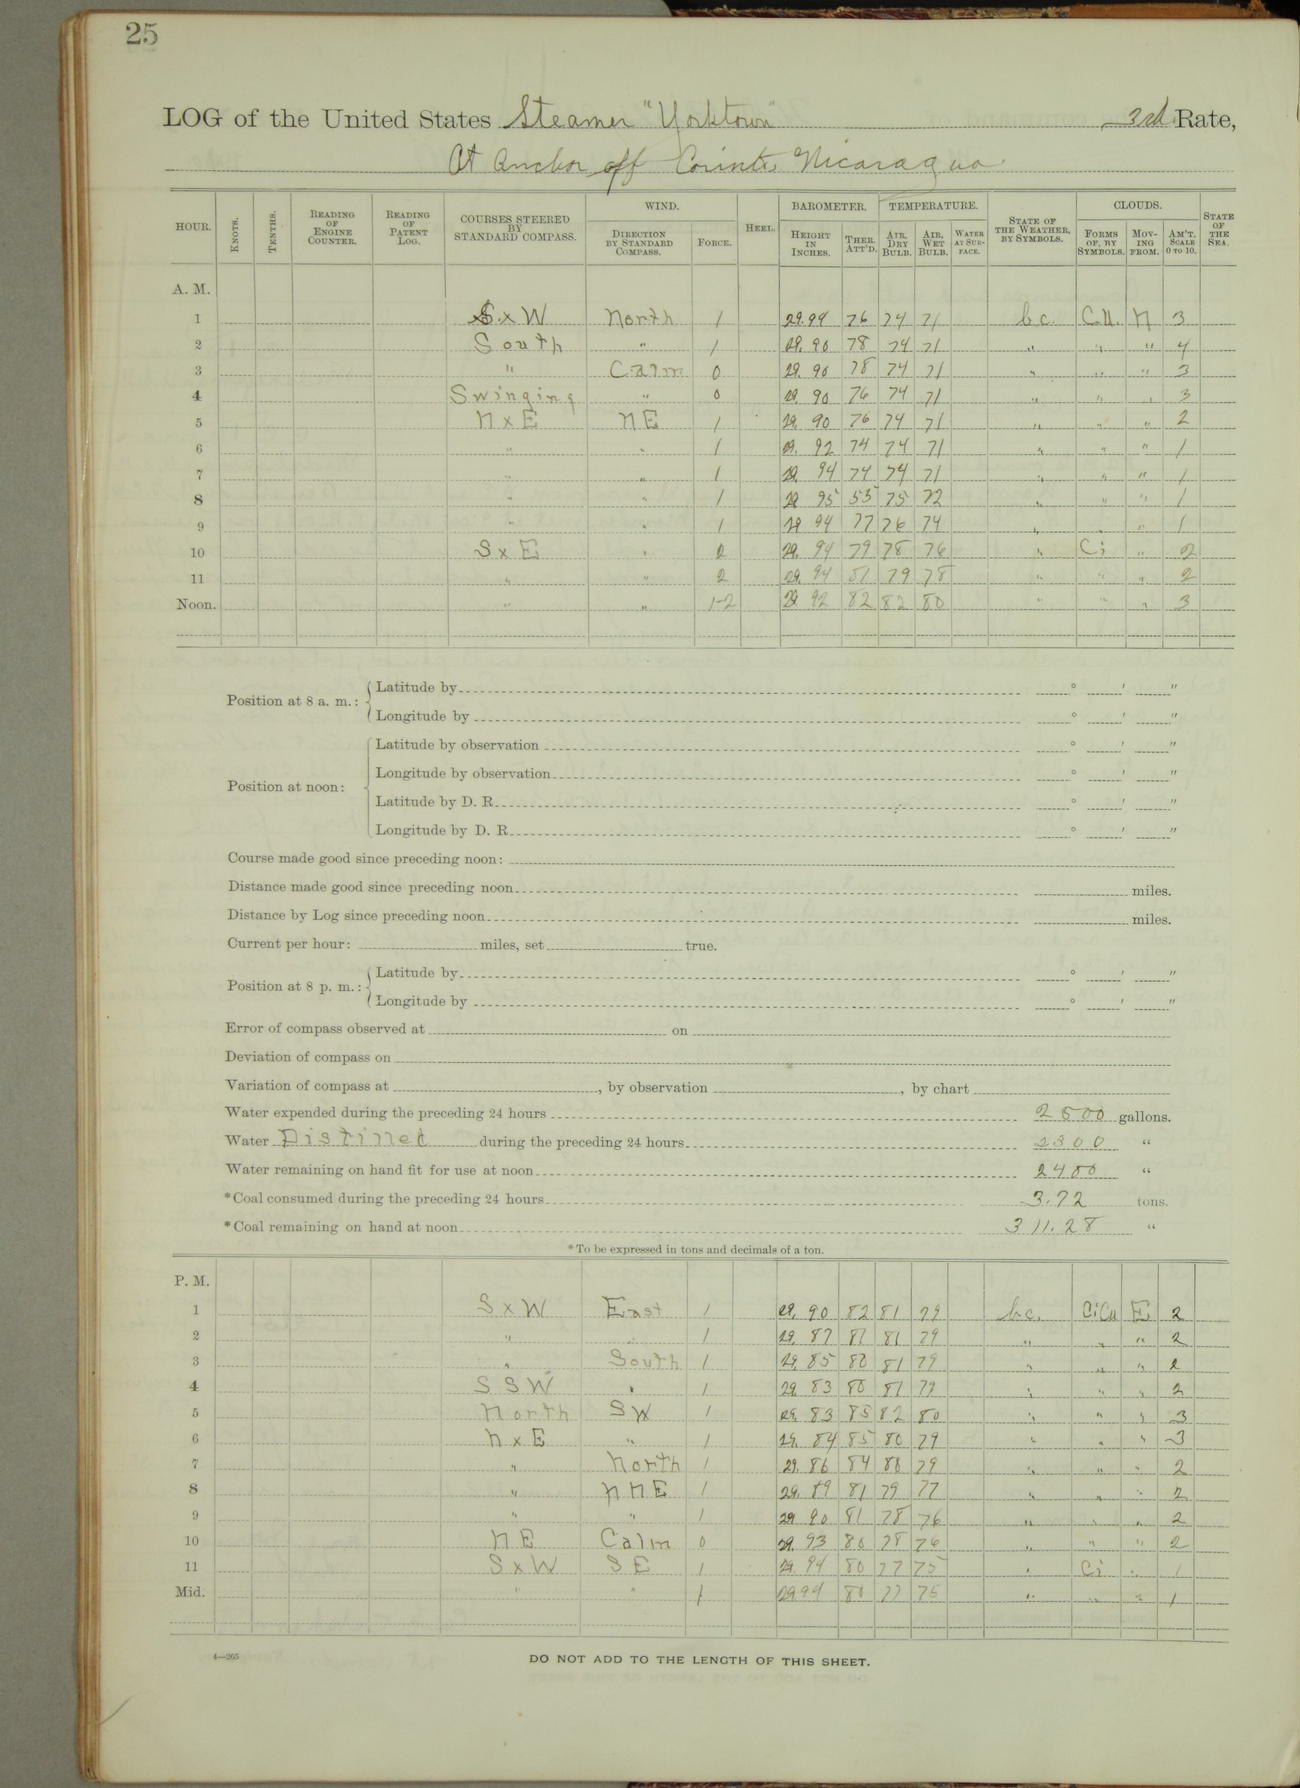 25
LOG of the United States Steamer "Yorktown" 3rd Rate,
At Anchor off Corinto Nicaragua
HOUR. KNOTS. TENTHS. READING OF ENGINE COUNTER. READING OF PATENT LOG. COURSES STEERED BY STANDARD COMPASS. WIND. DIRECTION BY STANDARD COMPASS. FORCE. HEEL. BAROMETER. HEIGHT IN INCHES. THER. ATT'D. TEMPERATURE. AIR, DRY BULB. AIR, WET BULB. WATER AT SURFACE. STATE OF THE WEATHER, BY SYMBOLS. CLOUDS. FORMS OF, BY SYMBOLS. MOVING FROM. AM'T. SCALE 0 TO 10. STATE OF THE SEA.
A. M.
1 SxW North 1 29.94 76 74 71 bc. Cu. N 3
2 South " 1 29.90 78 74 71 " " " 4
3 " Calm 0 29.90 78 74 71 " " " 3
4 Swinging " 0 29.90 76 74 71 " " " 3
5 NxE NE 1 29.90 76 74 71 " " " 2
6 " " 1 29.92 74 74 71 " " " 1
7 " " 1 29.94 74 74 71 " " " 1
8 " " 1 29.95 55 75 72 " " " 1
9 " " 1 29.94 77 76 74 " " " 1
10 SxE " 2 29.94 79 78 76 " Ci " 2
11 " " 2 29.94 81 79 78 " " " 2
Noon. " " 1-2 29.92 82 82 80 " " " 3
Position at 8 a. m.: Latitude by ° ′ ″
Longitude by ° ′ ″
Position at noon: Latitude by observation ° ′ ″
Longitude by observation ° ′ ″
Latitude by D. R. ° ′ ″
Longitude by D. R. ° ′ ″
Course made good since preceding noon:
Distance made good since preceding noon miles.
Distance by Log since preceding noon miles.
Current per hour: miles, set true.
Position at 8 p. m.: Latitude by ° ′ ″
Longitude by ° ′ ″
Error of compass observed at on
Deviation of compass on
Variation of compass at , by observation , by chart
Water expended during the preceding 24 hours 2500 gallons.
Water Distilled during the preceding 24 hours 2300 "
Water remaining on hand fit for use at noon 2400 "
*Coal consumed during the preceding 24 hours 3.72 tons.
*Coal remaining on hand at noon 311.28 "
*To be expressed in tons and decimals of a ton.
P. M.
1 SxW East 1 29.90 82 81 79 bc. CiCu E 2
2 " " 1 29.87 81 81 79 " " " 2
3 " South 1 29.85 80 81 79 " " " 2
4 SSW " 1 29.83 80 81 79 " " " 2
5 North SW 1 29.83 85 82 80 " " " 3
6 NxE " 1 29.84 85 80 79 " " " 3
7 " North 1 29.86 84 80 79 " " " 2
8 " NNE 1 29.89 81 79 77 " " " 2
9 " " 1 29.90 81 78 76 " " " 2
10 NE Calm 0 29.93 80 78 76 " " " 2
11 SxW SE 1 29.94 80 77 75 " Ci " 1
Mid. " " 1 29.94 80 77 75 " " " 1
4—265
DO NOT ADD TO THE LENGTH OF THIS SHEET.